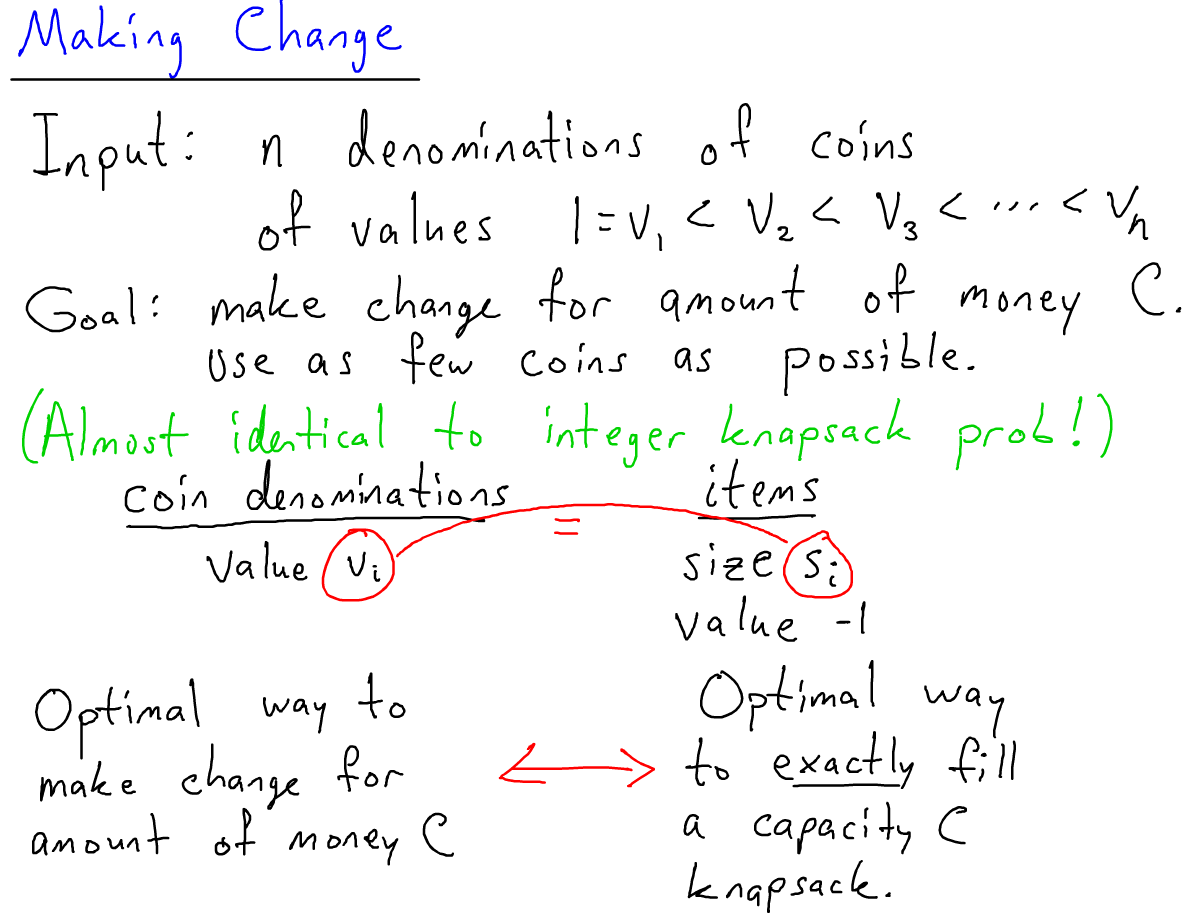 Making Change
Input: n denominations of coins
of values 1 = v₁ < v₂ < v₃ < ... < vₙ
Goal: make change for amount of money C.
Use as few coins as possible.
(Almost identical to integer knapsack prob!)
coin denominations items
=
value vᵢ size sᵢ
value -1
Optimal way to
make change for
amount of money C
Optimal way
to exactly fill
a capacity C
knapsack.